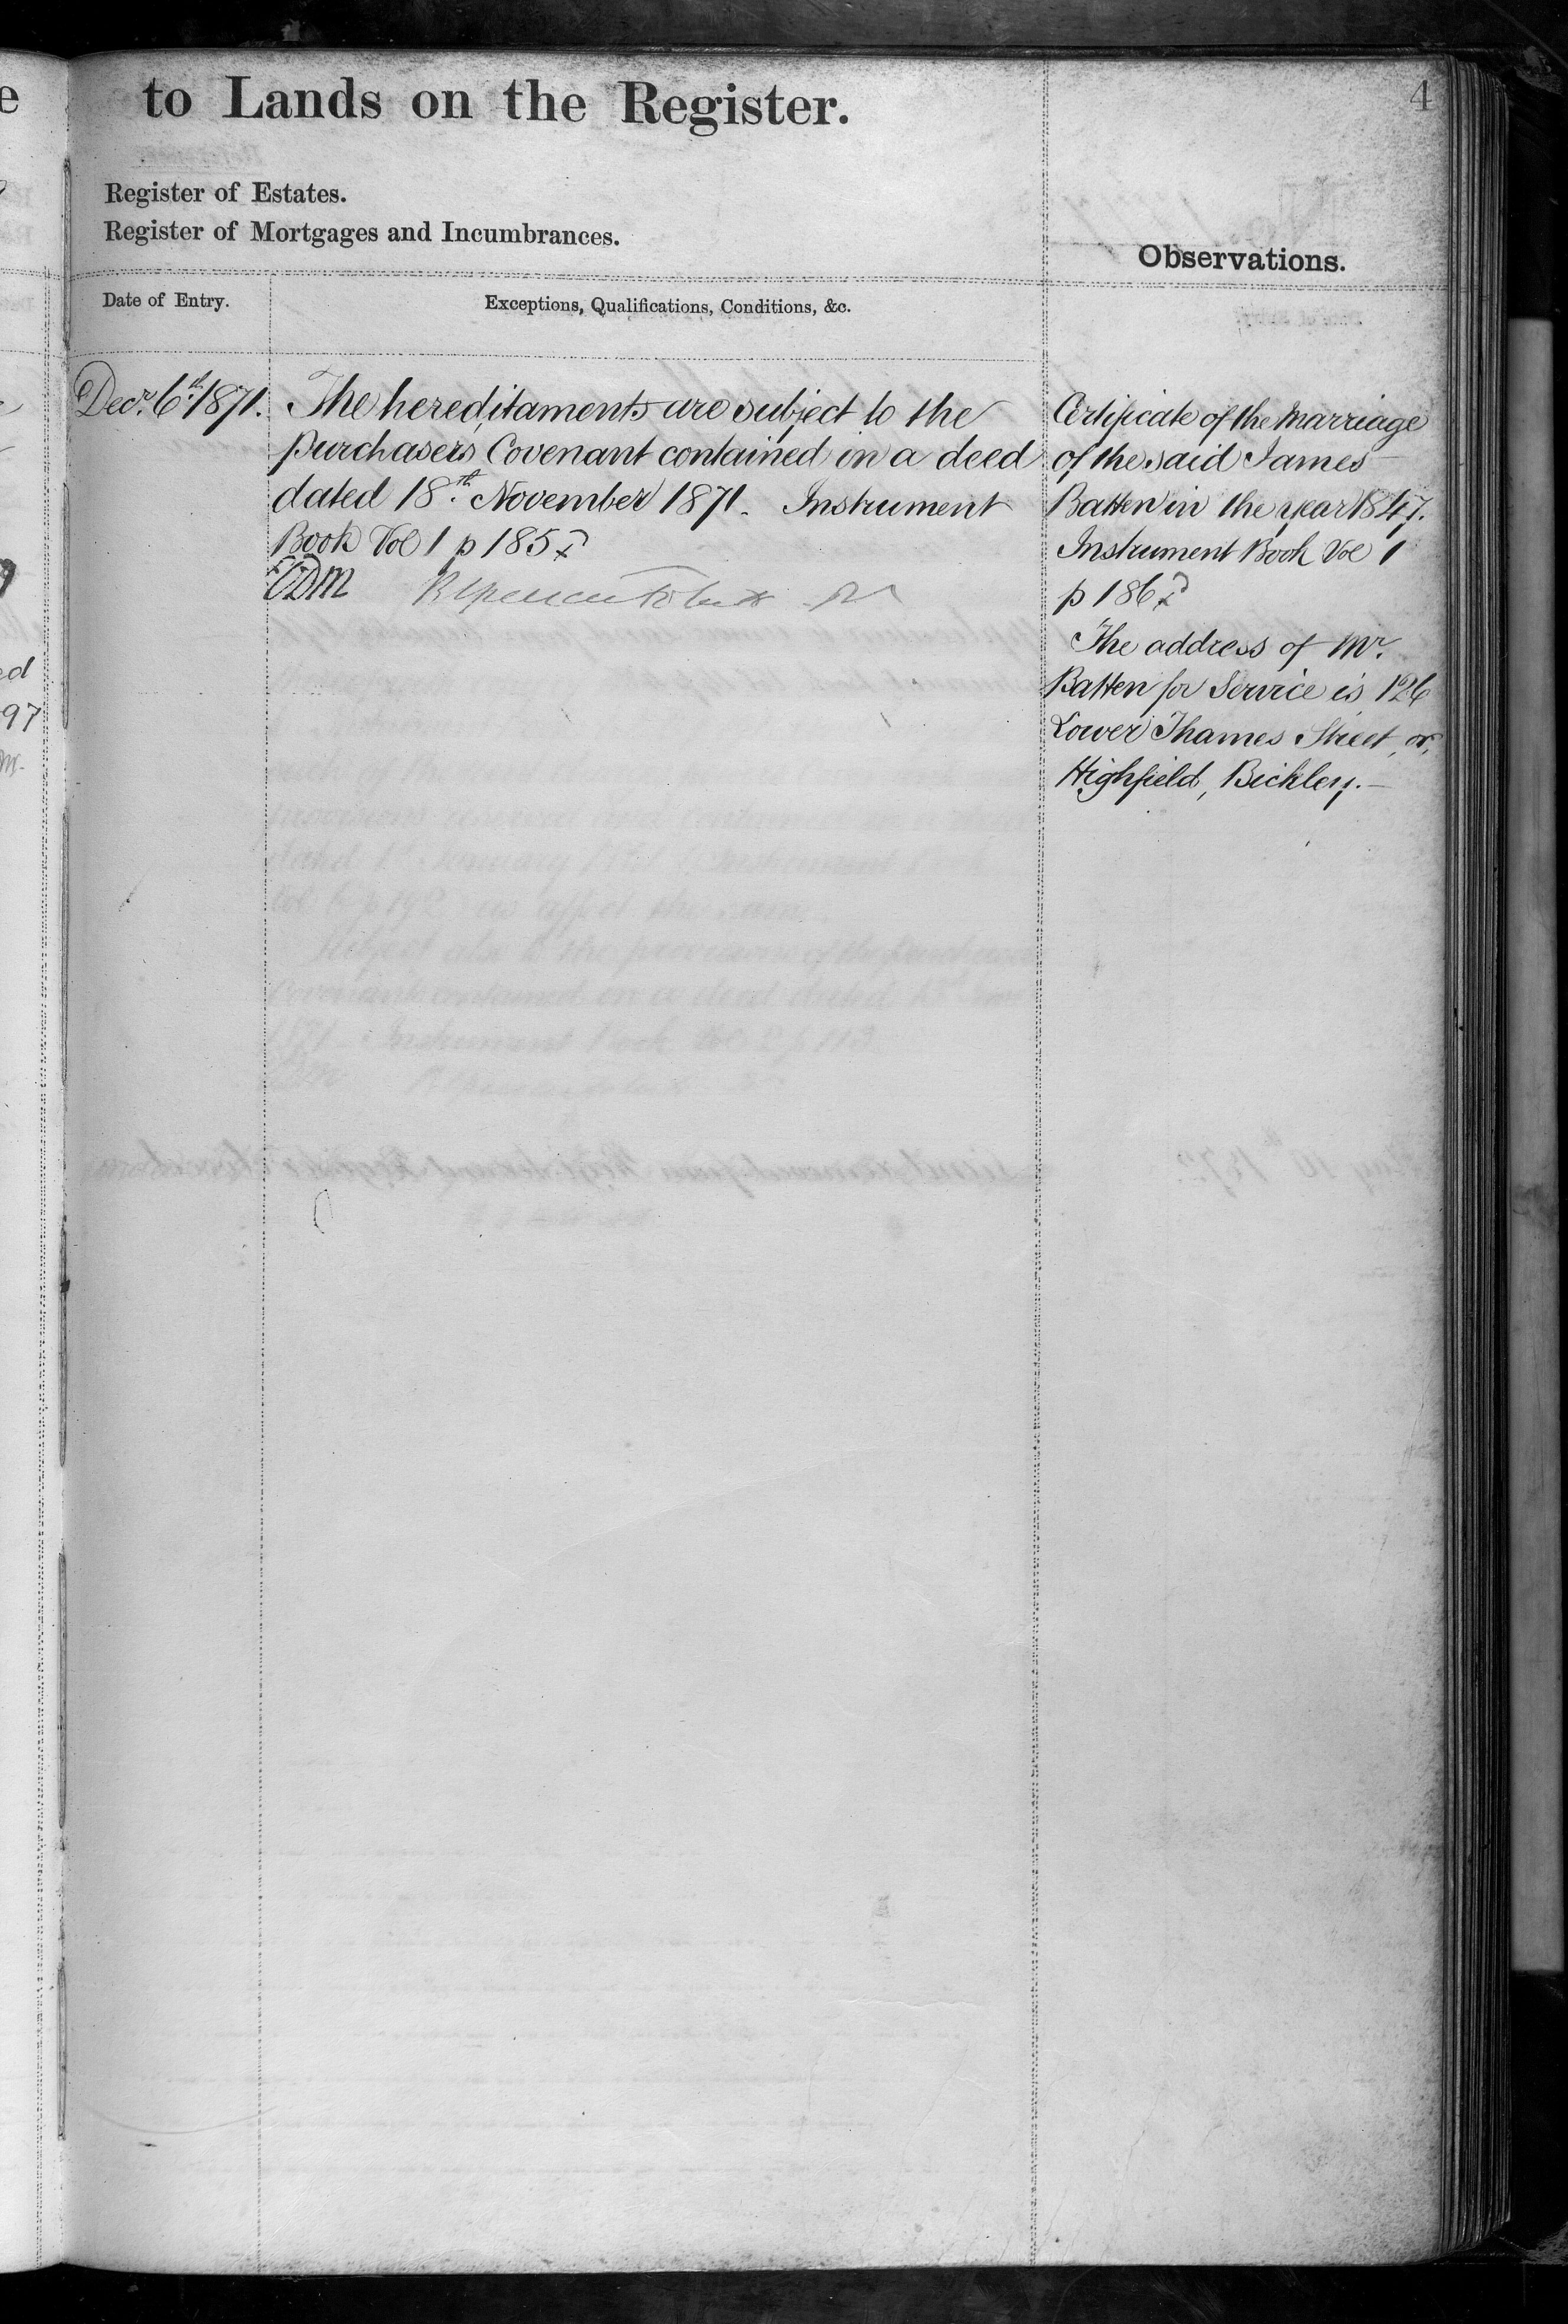 to Lands on the Register.
4
Register of Estates.
Register of Mortgages and Incumbrances.
Observations.
Date of Entry.
Exceptions, Qualifications, Conditions, &c.
Decr. 6th 1871.
The hereditaments are subject to the
purchasers Covenant contained in a deed
dated 18th. November 1871. Instrument
Book Vol 1 p 185
EDM
Certificate of the Marriage
of the said James
Batten in the year 1847.
Instrument Book Vol 1
p 186
The address of Mr.
Batten for Service is 126
Lower Thames Street, or,
Highfield, Bickley.—
e
ed
97